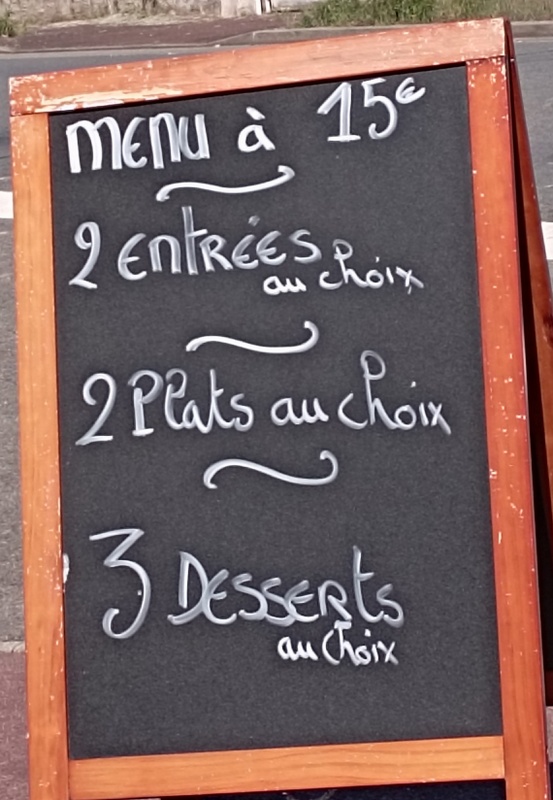 MENU à 15€
2 ENTRÉES
au choix
2 Plats au choix
3 DESSERTS
au choix